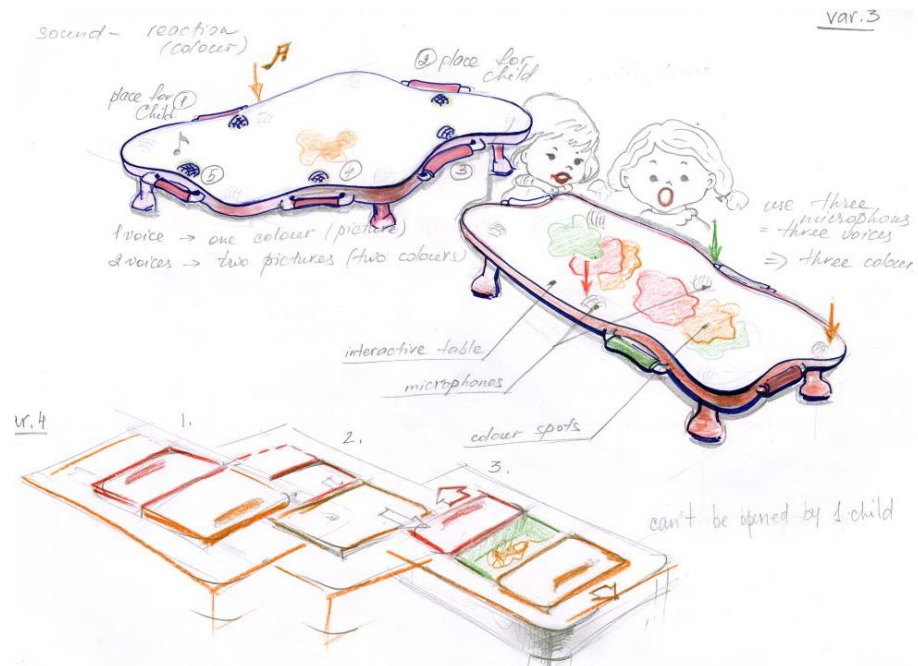 var.3
sound - reaction
(colour)
② place for
child
place for ①
child
⑤
④
③
1 voice → one colour (picture)
2 voices → two pictures (two colours)
use three
microphons
= three voices
⇒ three colour
interactive table
microphones
colour spots
var.4
1.
2.
3.
can't be opened by 1 child